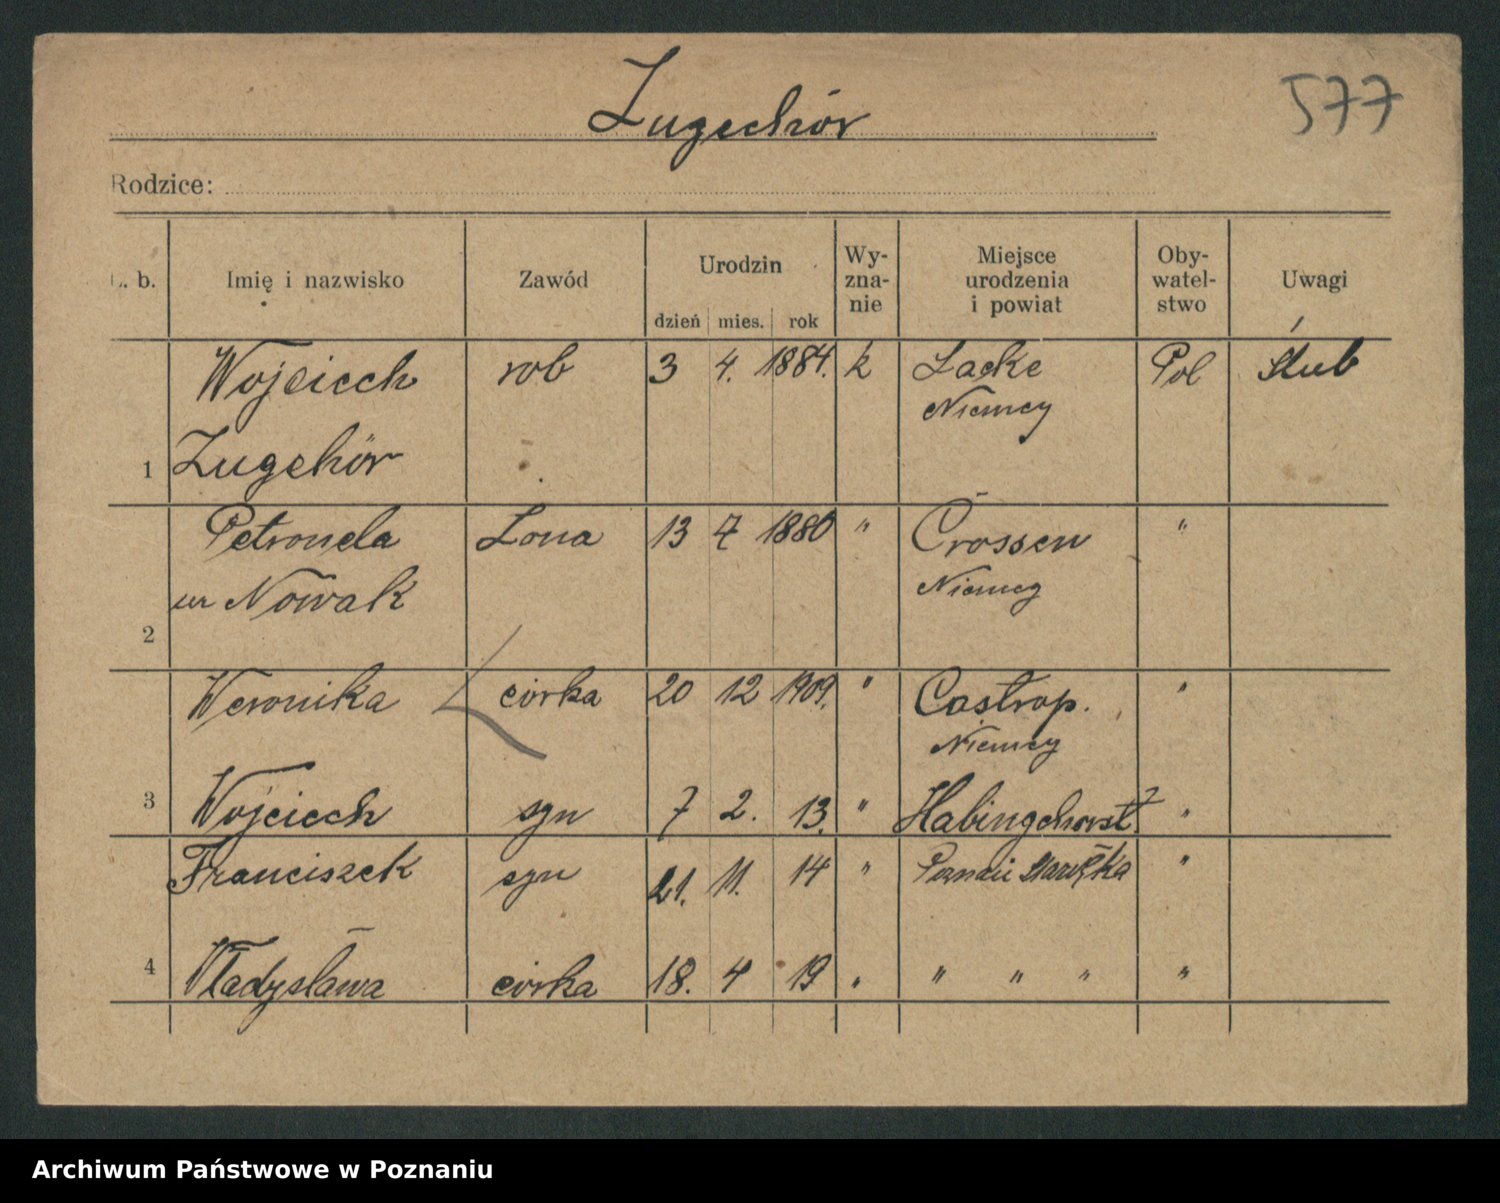 Zugehör
577
Rodzice:
L. b. Imię i nazwisko Zawód Urodzin dzień mies. rok Wy-zna-nie Miejsce urodzenia i powiat Oby-watel-stwo Uwagi
Wojciech rob 3 4. 1884. k Lacke Pol Ślub
Niemcy
1 Zugehör
Petronela żona 13 7 1880 " Crossen "
ur Nowak Niemcy
2
Weronika córka 20 12 1909. " Castrop. "
Niemcy
3 Wojciech syn 7 2. 13. " Habinghorst "
Franciszek syn 21. 11. 14 " Poznań Starołęka "
4 Władysława córka 18. 4 19 " " " " "
Archiwum Państwowe w Poznaniu